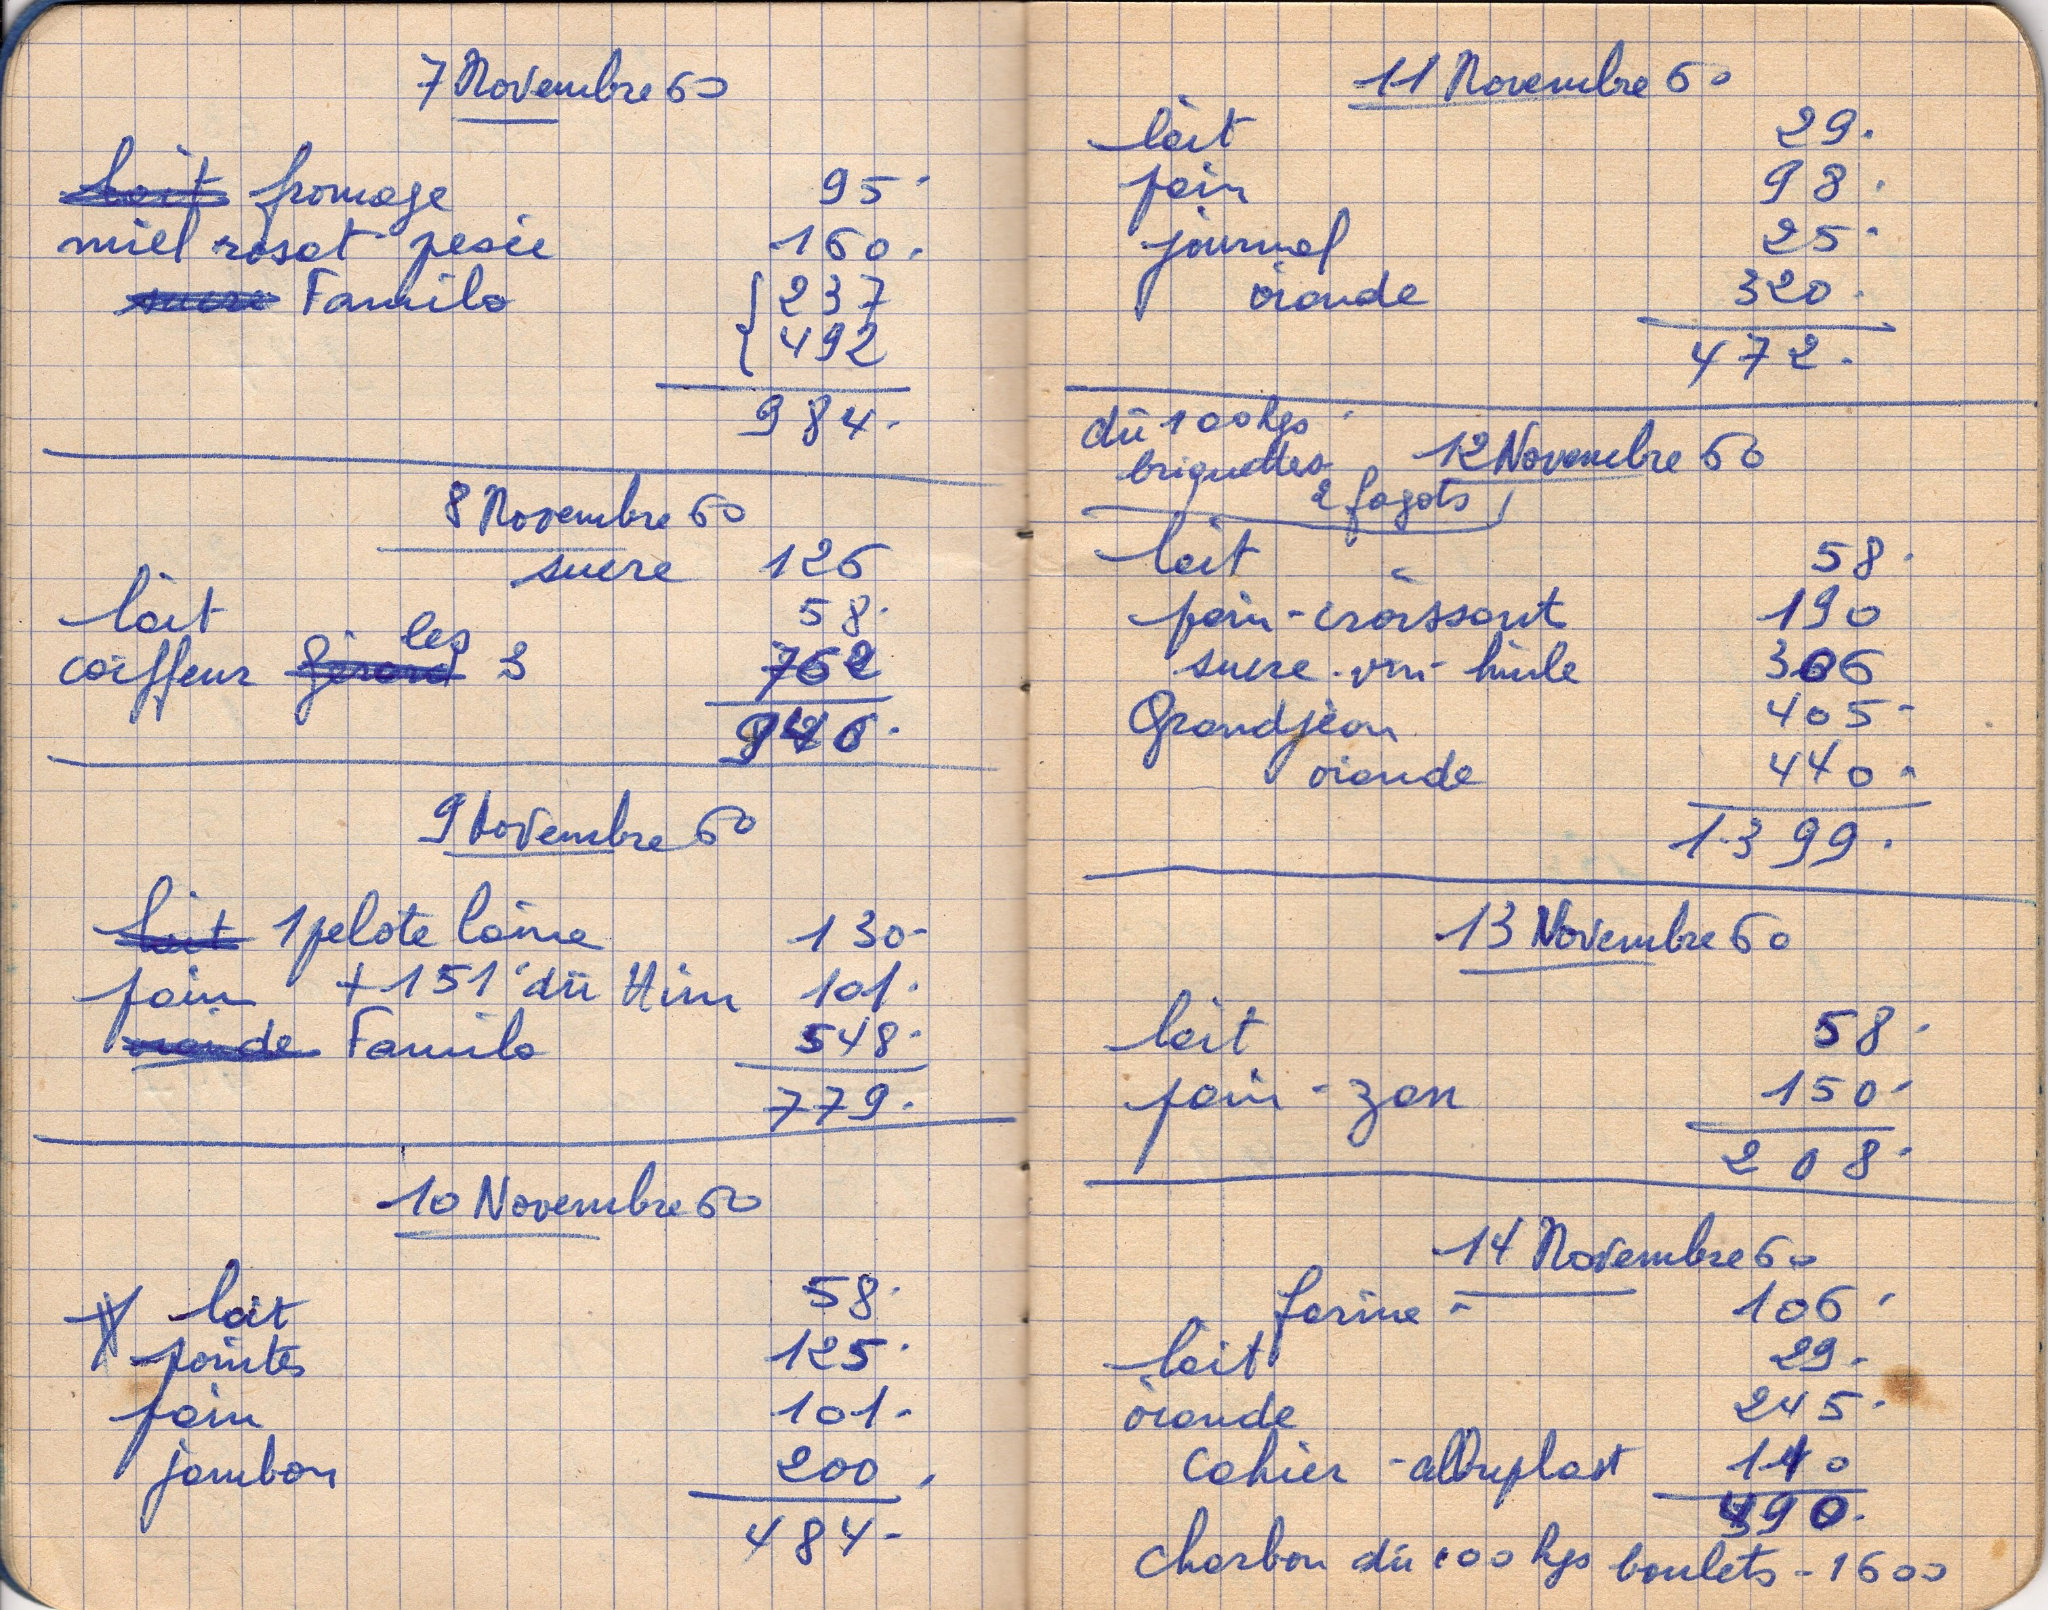 7 Novembre 60
lait fromage 95.
miel rosat pesée 160.
sucre Familo 237
492
984.
8 Novembre 60
sucre 126
lait 58.
les
coiffeur Gérard 3 762
946.
9 Novembre 60
lait 1 pelote laine 130-
pain + 151 dû Him 101.
viande Familo 548-
779.
10 Novembre 60
lait 58.
pointes 125.
pain 101.
jambon 200.
484-
11 Novembre 60
lait 29.
pain 98.
journal 25.
viande 320.
472.
dû 100 kgs
briquettes 12 Novembre 60
2 fagots
lait 58.
pain-croissant 190
sucre-vin-huile 306
Grandjean 405-
viande 440.
1.399.
13 Novembre 60
lait 58.
pain - zan 150.
208.
14 Novembre 60
farine - 106.
lait 29.
viande 245.
Cahier - 110
490.
Charbon dû 100 kgs boulets - 1600